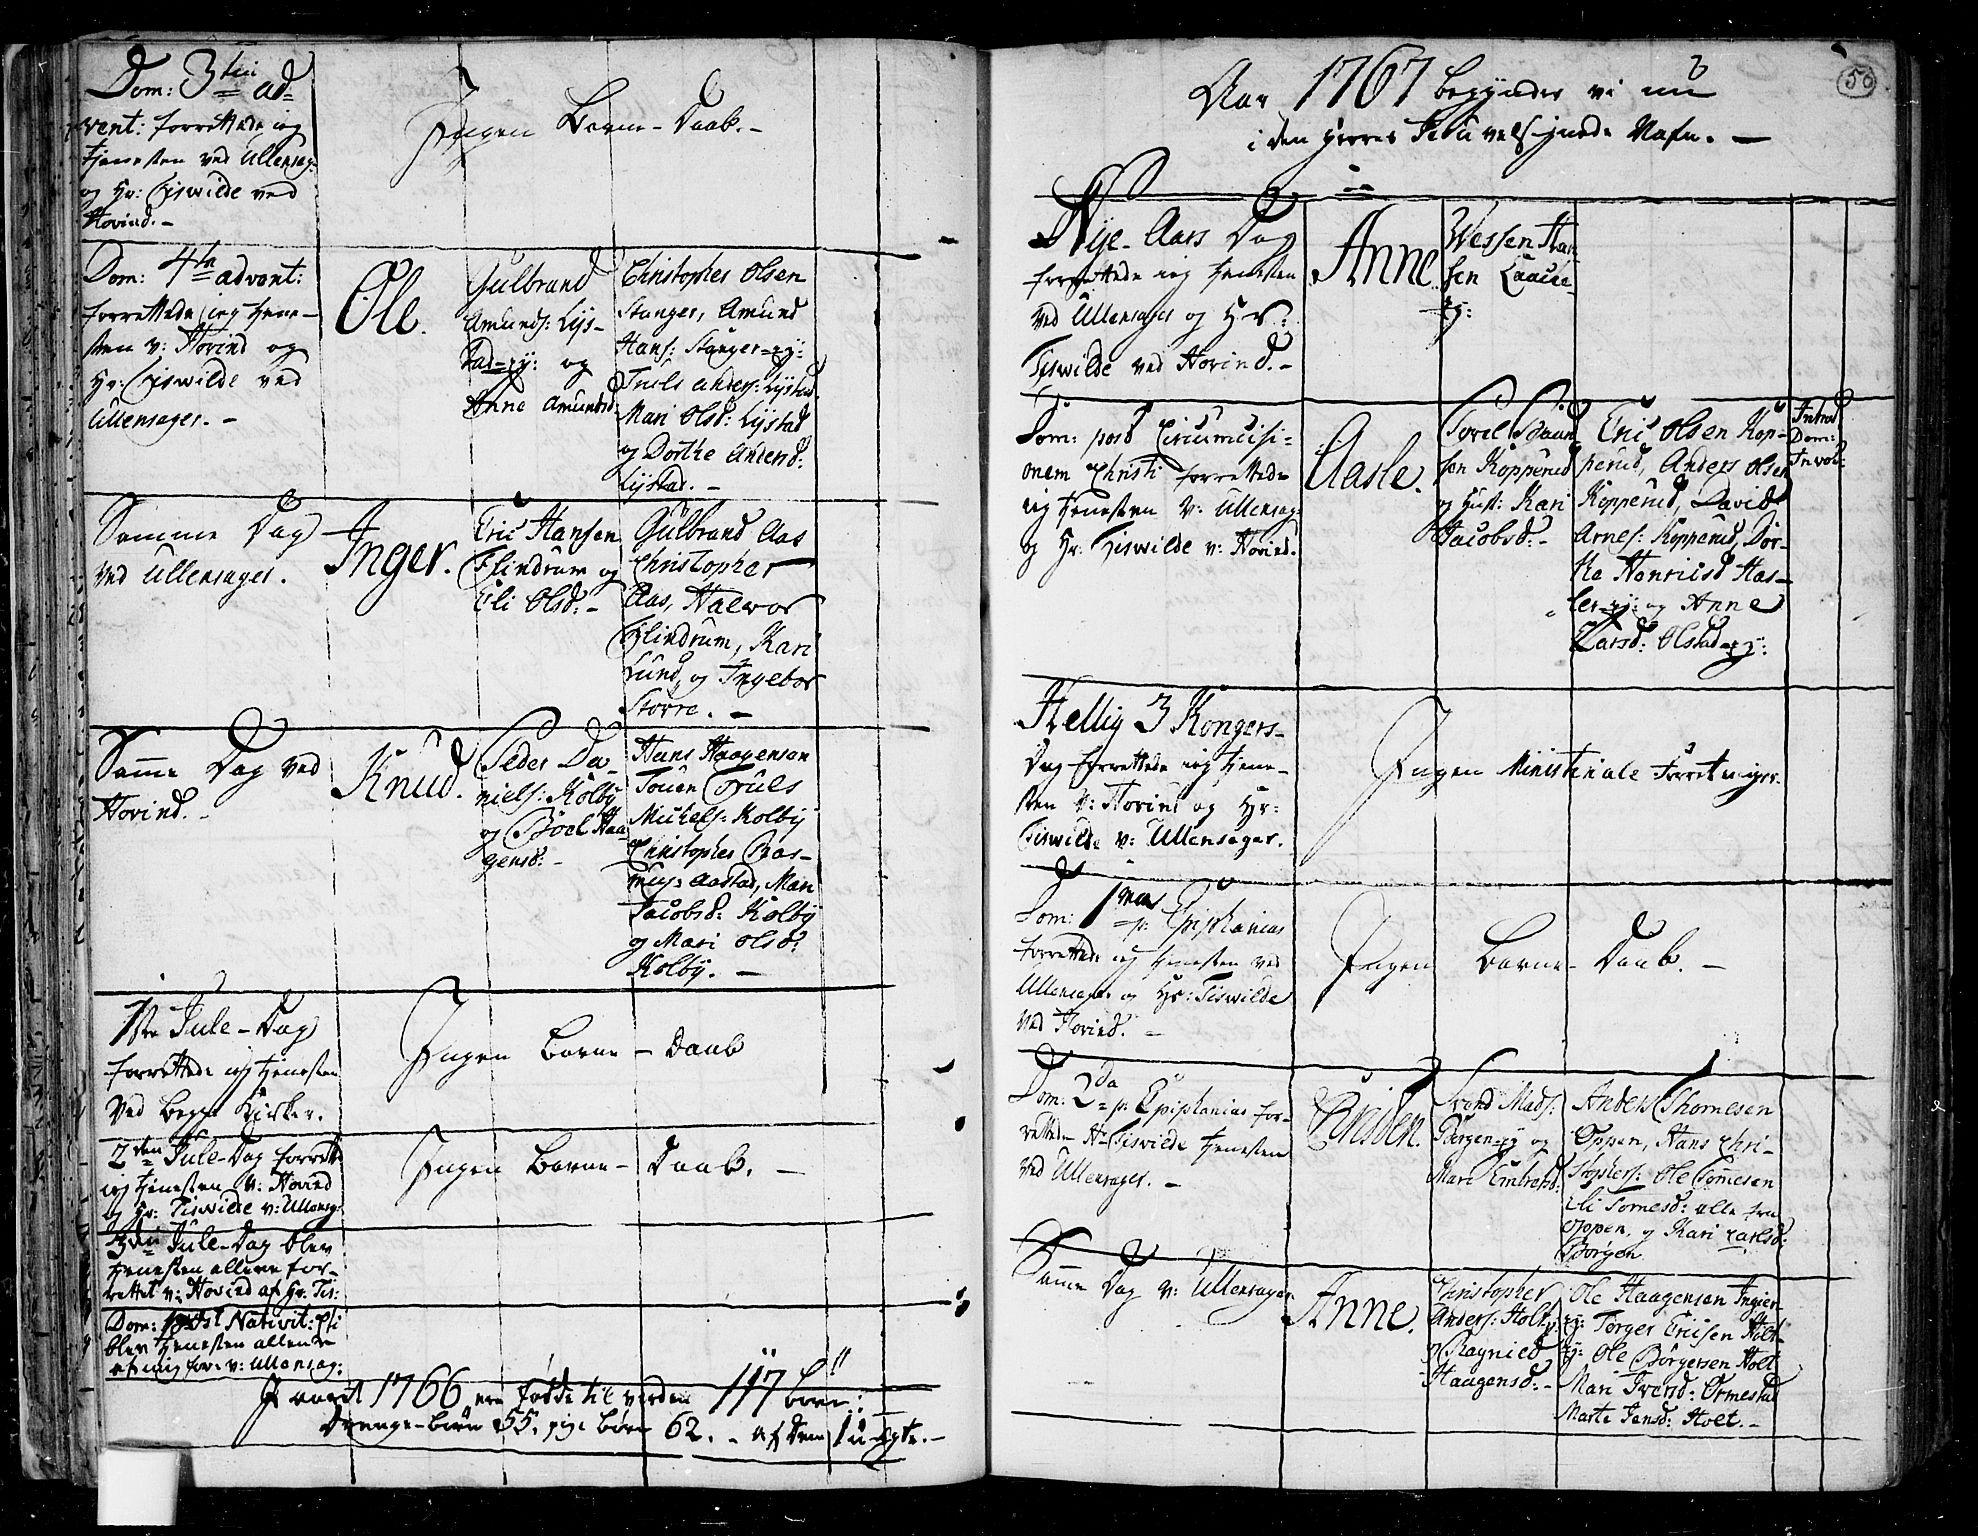 Dom: 3tia ad=
vent: forrettede ieg
tjenesten ved Ullensag:
og Hr: Tiswilde ved
Hovind. –
Ingen Barne-Daab. –
Dom: 4ta advent:
forrettede ieg tjene-
sten v: Hovind og
Hr: Tiswilde ved
Ullensager. –
Ole.
Gulbrand
Amunds: Lys-
tad-ey: og
Anne Amundsd:
Christopher Olsen
Stanger, Amund
Hans: Stanger-ey:
Truls Anders: Lystad
Mari Olsd: Lystad
og Dorthe Andersd:
Lystad. –
Samme Dag
ved Ullensager.
Inger.
Eric Hansen
Flindrum og
Eli Olsd: –
Gulbrand Aas
Christopher
Aas, Halvor
Flindrum, Kari
Lund, og Ingebor
Storre. –
Samme Dag ved
Hovind. –
Knud.
Peder Da-
niels: Kolby
og Böel Haa
gensd: –
Hans Haagensen
Touen Truls
Michels: Kolby
Christopher Ras-
mus: Aastad, Mari
Jacobsd: Kolby
og Mari Olsd:
Kolby. –
1ste Jule-Dag
forrettede ieg tjenesten
ved begge Kirker.
Ingen Barne-Daab
2den Jule-Dag forrette
ieg tjenesten v: Hovind
og Hr: Tiswilde v: Ullensag:
Ingen Barne-Daab. –
3die Jule-Dag blev
tjenesten allene for-
rettet v: Hovind af Hr: Tis:
Dom: post Nativit: Chri
blev tjenesten allene
af mig for: v: Ullensag:
I aaret 1766 ere fødde til verden 117 børn:
Drenge-børn 55. pige børn 62. – af dem 1 u-ægte. –
50
Aar 1767 begynder vi nu
i den Herres Jesu velsignede Nafn. –
Nye-Aars Dag
forrettede ieg tjenesten
ved Ullensager og Hr:
Tiswilde ved Hovind. –
Anne
Wessen Han
sen
ey:
Dom: post Circumcisi-
onem Christi forrettede
ieg tjenesten v: Ullensag:
og Hr: Tiswilde v: Hovind.
Aasle.
sen Kopperud
og Hust: Kari
Jacobsd: –
Eric Olsen Kop-
perud, Anders Olsen
Kopperud, David
Arnes: Kopperud, Dor-
the Henricsd Has-
ler-ey: og Anne
Larsd: Olstad-ey:
Introd
Dom:
Invoc:
Hellig 3 Kongers-
Dag forrettede ieg tjene-
sten v: Hovind og Hr:
Tiswilde v: Ullensager.
Ingen Ministeriale Forretninger.
Dom: 1ma p: Epiphanias
forrettede ieg tjenesten ved
Ullensager og Hr: Tiswilde
ved Hovind. –
Ingen Barne-Daab. –
Dom: 2da p: Epiphanias for-
rettede Hr Tiswilde tjenesten
ved Ullensager. –
Preben.
Trond Mads:
Borgen-ey og
Mari Embretsd:
Anders Thomesen
Oppen, Hans Chri-
stophers: Ole Tomesen
Eli Tomesd: alle fra
Oppen, og Kari Carlsd:
Borgen
Samme Dag v: Ullensager
Anne.
Christopher
Anders: Holt ey:
og Ragnild
Haagensd: –
Ole Haagensen Ingier-
ey: Torger Ericsen Holt-
ey: Ole Børgersen Holt
Mari Iversd: Ormestad
Marte Jensd: Holt. –